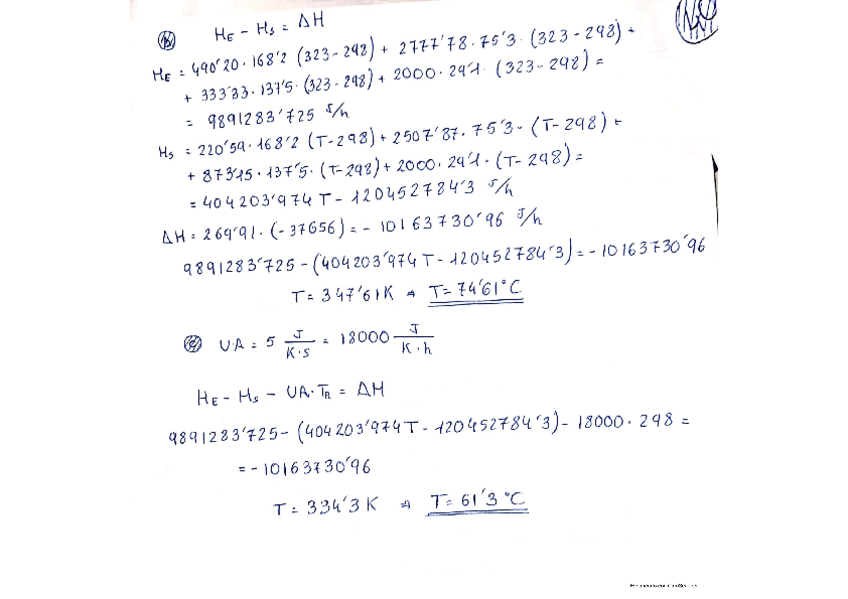 ⓑ H_E - H_s = ΔH
H_E = 490'20 · 168'2 (323-298) + 2777'78 · 75'3 · (323-298) +
+ 333'33 · 137'5 · (323-298) + 2000 · 29'1 · (323-298) =
= 9891283'725 J/h
H_s = 220'59 · 168'2 (T-298) + 2507'87 · 75'3 · (T-298) +
+ 873'15 · 137'5 · (T-298) + 2000 · 29'1 · (T-298) =
= 404203'974 T - 120452784'3 J/h
ΔH = 269'91 · (-37656) = - 10163730'96 J/h
9891283'725 - (404203'974 T - 120452784'3) = - 10163730'96
T = 347'61 K ⇒ T = 74'61 °C
ⓒ U·A = 5 J/K·s = 18000 J/K·h
H_E - H_s - UA·T_R = ΔH
9891283'725 - (404203'974 T - 120452784'3) - 18000 · 298 =
= - 10163730'96
T = 334'3 K ⇒ T = 61'3 °C